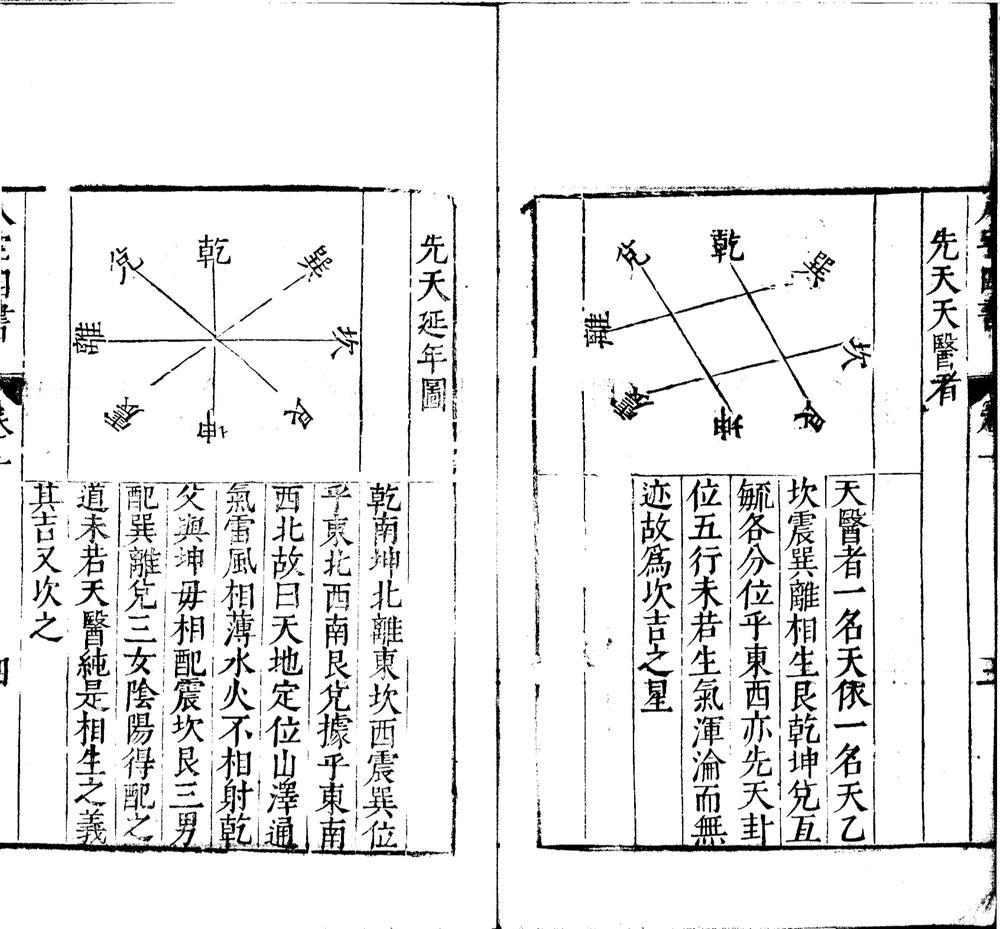 先天天醫者
巽
乾
兌
坎
離
艮
坤
震
天醫者一名天依一名天乙
坎震巽離相生艮乾坤兌互
毓各分位乎東西亦先天卦
位五行未若生氣渾淪而無
迹故爲次吉之星
三
先天延年圖
巽
乾
兌
坎
離
艮
坤
震
乾南坤北離東坎西震巽位
乎東北西南艮兌據乎東南
西北故曰天地定位山澤通
氣雷風相薄水火不相射乾
父與坤母相配震坎艮三男
配巽離兌三女陰陽得配之
道未若天醫純是相生之義
其吉又次之
四